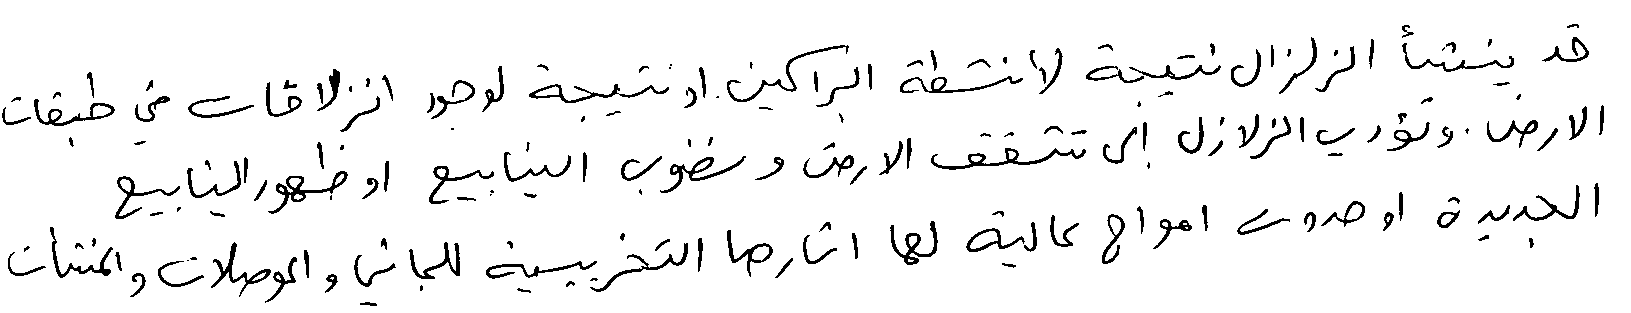 قد ينشأ الزلزال نتيجة لانشطة البراكين او نتيجة لوجود انزلاقات في طبقات
الارض. وتؤدي الزلازل إلى تشقق الارض و نضوب الينابيع او ظهور الينابيع
الجديدة او حدوث امواج عالية لها اثارها التخريبية للمباني والموصلات والمنشأت